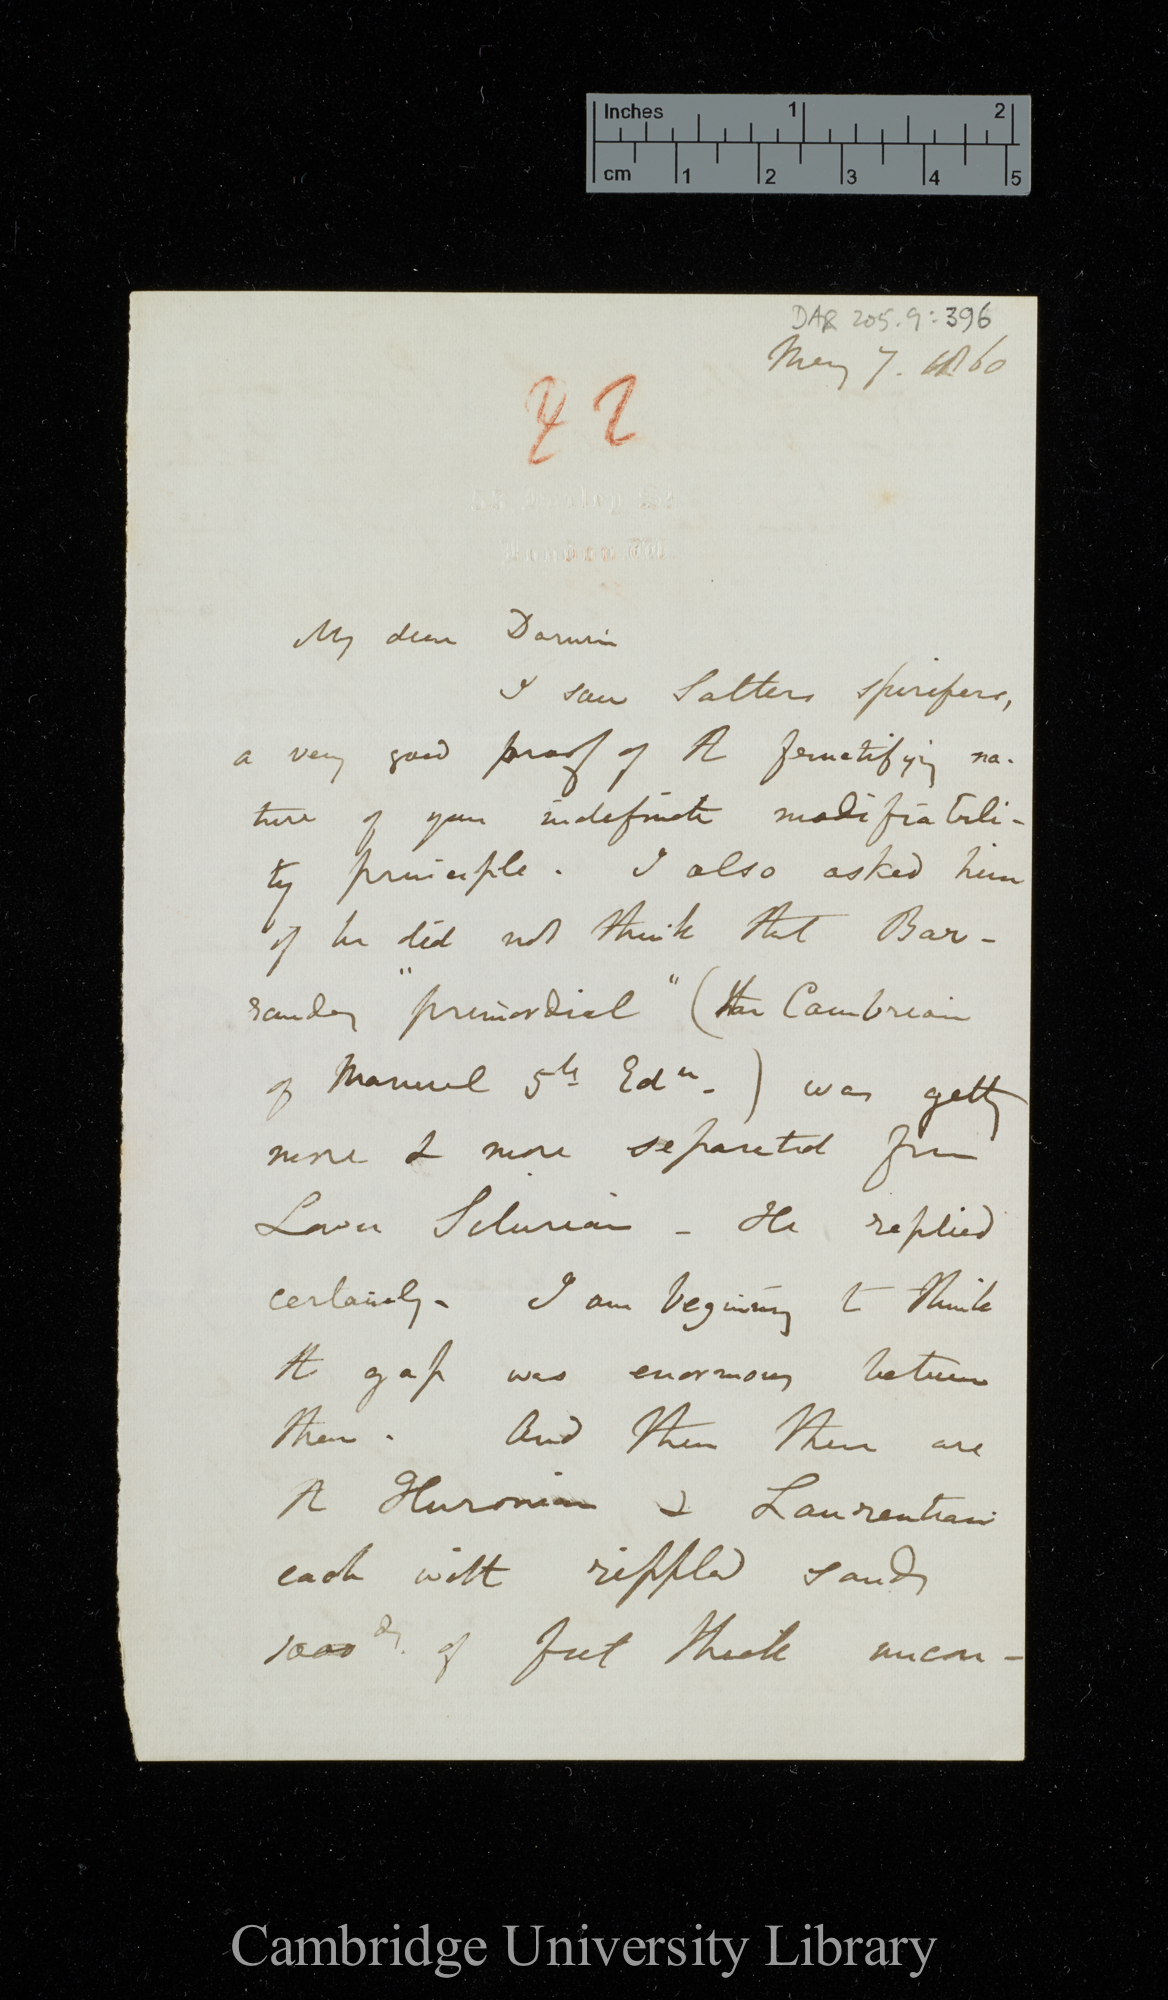 Inches 1 2
cm 1 2 3 4 5
DAR 205.9:396
May 7. 1860
22
53 Harley St
London W.
My dear Darwin
I saw Salters spirifers,
a very good proof of the fructifying na-
ture of your indefinite modifiabili-
ty principle. I also asked him
if he did not think that Bar-
randes "primordial" (the Cambrian
of Manuel 5th Edn.) was getting
more & more separated from
Lower Silurian – He replied
certainly – I am beginning to think
the gap was enormous between
them. And then there are
the Huronian & Laurentian
each with rippled sands
1000ds. of feet thick uncon-
Cambridge University Library